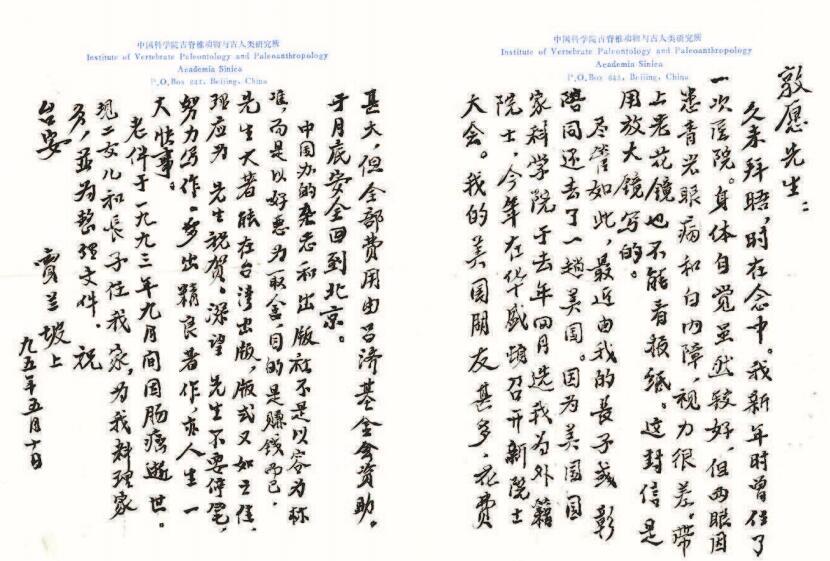 中国科学院古脊椎动物与古人类研究所
Institute of Vertebrate Paleontology and Paleoanthropology
Academia Sinica
P.O.Box 643, Beijing, China
敦愿先生：
久未拜晤，时在念中。我新年时曾住了
一次医院。身体自觉虽然较好，但两眼因
患青光眼病和白内障，视力很差。带
上老花镜也不能看报纸。这封信是
用放大镜写的。
尽管如此，最近由我的长子彧彰
陪同还去了一趟美国。因为美国国
家科学院于去年四月选我为外籍
院士，今年在华盛顿召开新院士
大会。我的美国朋友甚多，花费
中国科学院古脊椎动物与古人类研究所
Institute of Vertebrate Paleontology and Paleoanthropology
Academia Sinica
P.O.Box 643, Beijing, China
甚大，但全部费用由吕济基金会资助。
于月底安全回到北京。
中国办的杂志和出版社不是以容为标
准，而是以好恶为取舍，目的是赚钱而已。
先生大著能在台湾出版，版式又如之佳，
理应为 先生祝贺。深望 先生不要停笔，
努力写作。多出精良著作，亦人生一
大快事。
老伴于一九九三年九月间因肠癌逝世。
现二女儿和长子住我家，为我料理家
务，并为整理文件。祝
台安
贾兰坡上
九五年五月十日